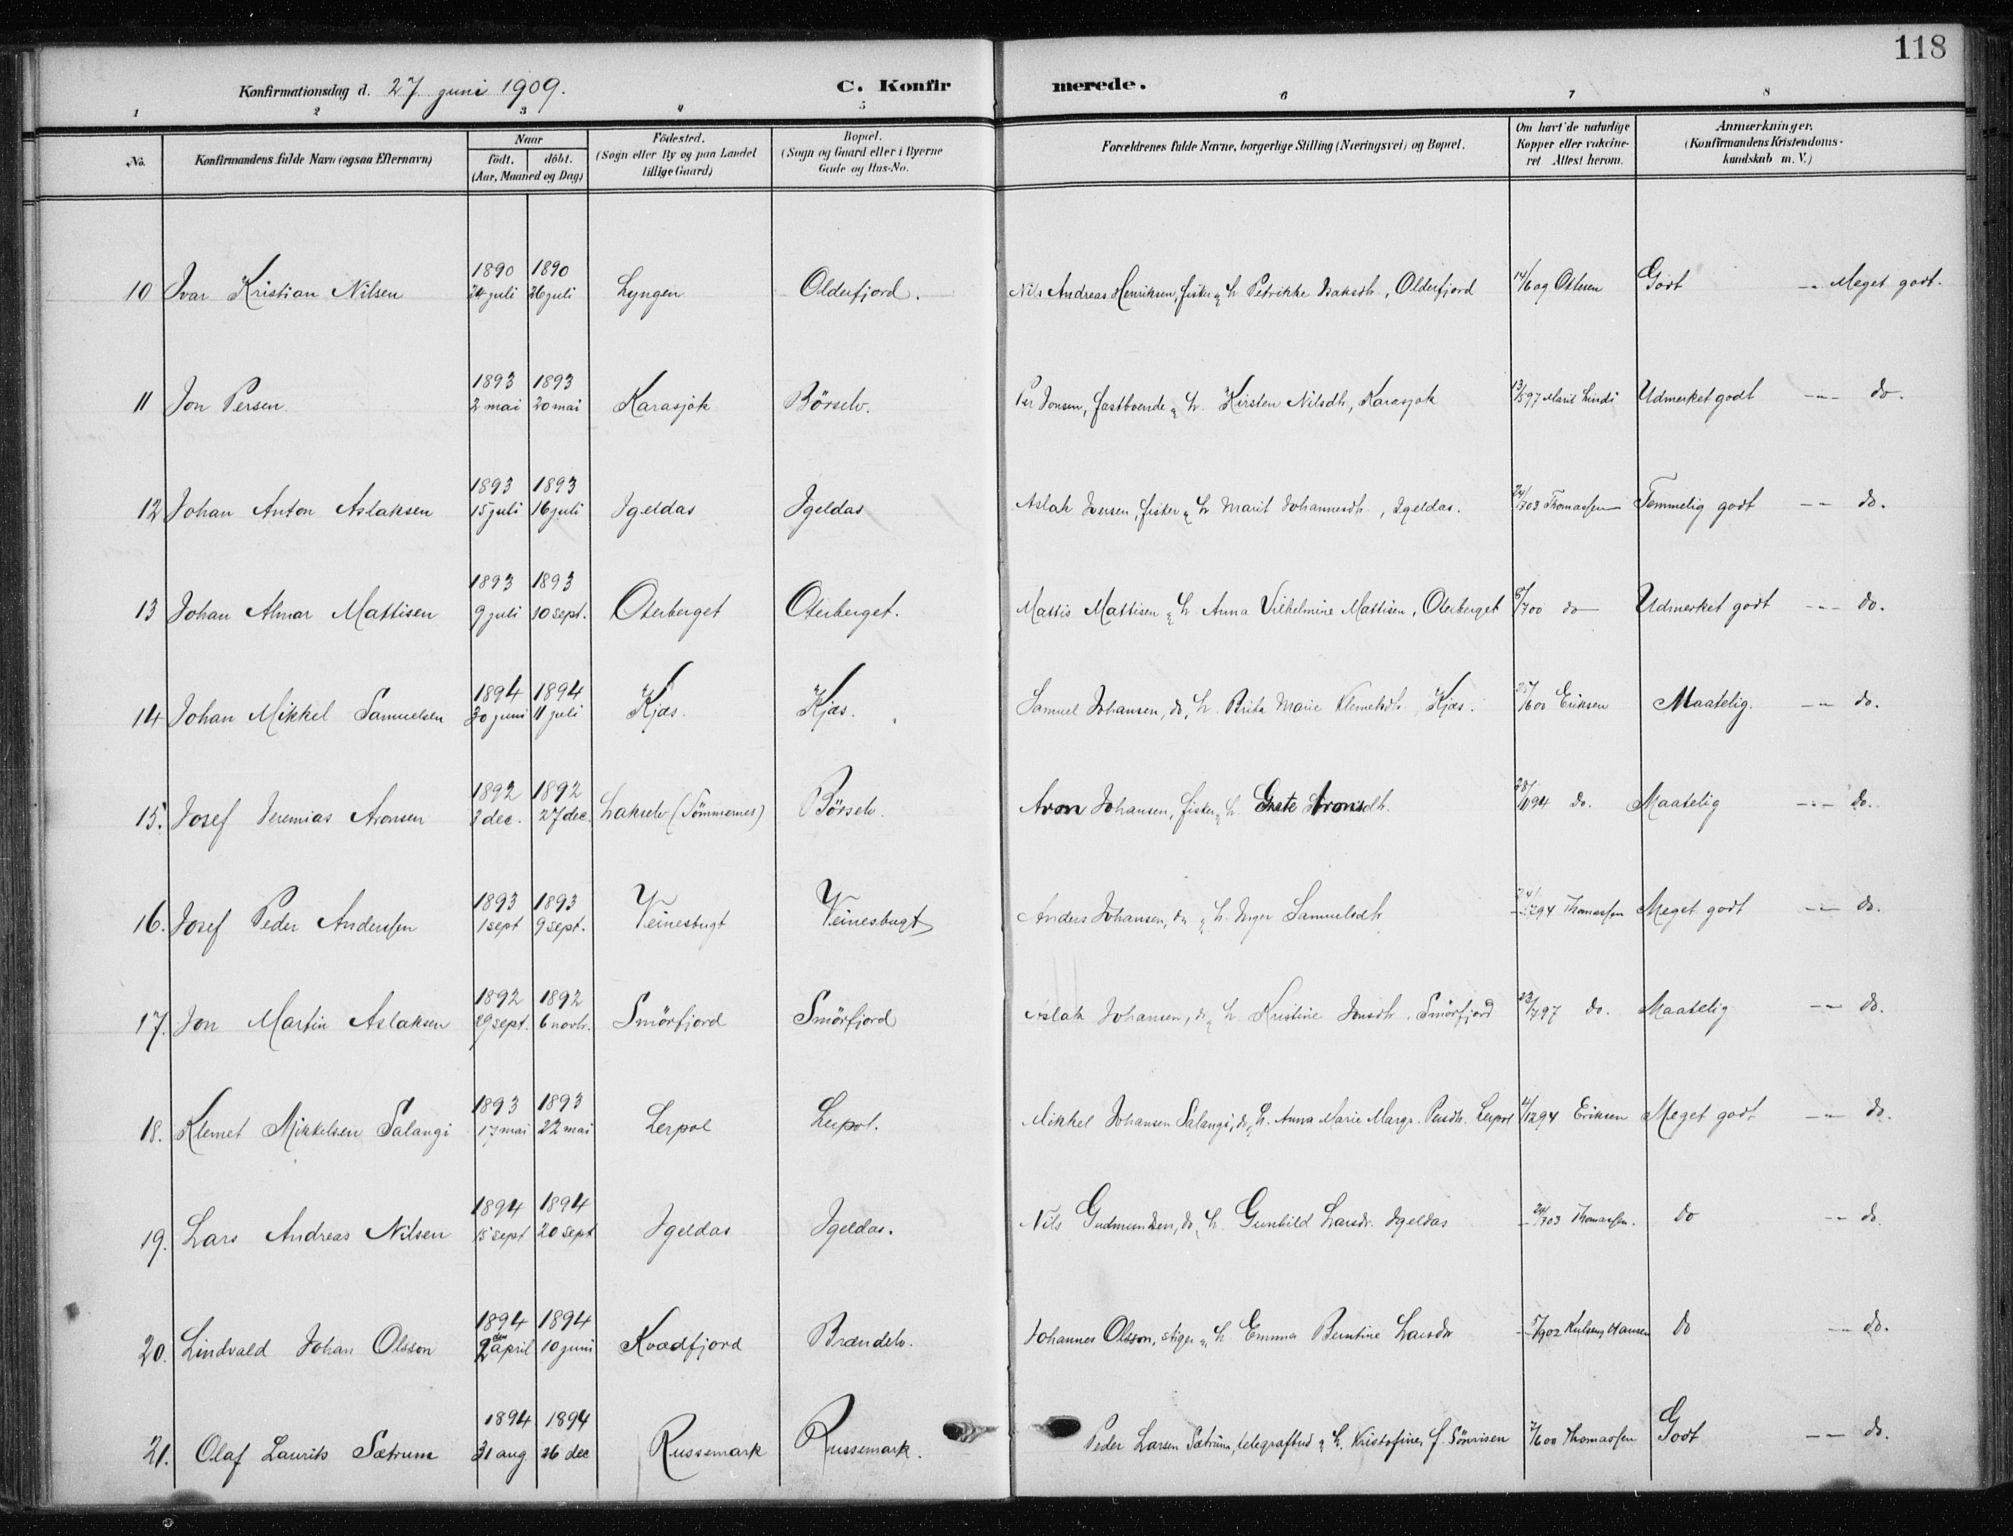 118
Konfirmationsdag d. 27 juni 1909.
C. Konfirmerede.
1 2 3 4 5 6 7 8
No. Konfirmandens fulde Navn (ogsaa Efternavn) Naar født. døbt. (Aar, Maaned og Dag) Fødested. (Sogn eller By og paa Landet tillige Gaard) Bopæl. (Sogn og Gaard eller i Byerne Gade og Hus-No. Forældrenes fulde Navne, borgerlige Stilling (Næringsvei) og Bopæl. Om havt de naturlige Kopper eller vakcineret Attest herom. Anmærkninger. (Konfirmandens Kristendomskundskab m. V.)
10 Ivar Kristian Nilsen 1890 24 juli 1890 26 juli Lyngen Olderfjord. Nils Andreas Henriksen, fisker & h. Petrikke Isaksdtr., Olderfjord 14/6 09 Ottesen Godt -- Meget godt.
11 Jon Persen. 1893 2 mai 1893 20 mai Karasjok Børselv. Per Jonsen, fastboende & h. Kirsten Nilsdtr, Karasjok 13/5 97 Marit Lindi Udmerket godt --- do.
12 Johan Anton Aslaksen 1893 15 juli 1893 16 juli Igeldas Igeldas Aslak Iversen, fisker & h. Marit Johannesdtr., Igeldas. 24/7 03 Thomassen Temmelig godt -- do.
13 Johan Almar Mattisen 1893 9 juli 1893 10 sept. Oterberget Oterberget. Mattis Mattisen & h. Anna Vilhelmine Mattisen, Oterberget 8/7 00 do Udmerket godt --- do.
14 Johan Mikkel Samuelsen 1894 30 juni 1894 11 juli Kjæs. Kjæs. Samuel Johansen, do, h. Brita Marie Klemetsdtr. Kjæs. 25/6 00 Eriksen Maatelig. -- do.
15. Josef Jeremias Aronsen 1892 3 dec. 1892 27 dec. Lakselv (Tømmernes) Børselv. Aron Johansen, fisker & h. Grete Aronsdtr. do. Maatelig --- do.
16. Josef Peder Anderssen 1893 1 sept 1893 9 sept. Veinesbugt Veinesbugt Anders Johansen, do & h. Inger Samuelsdtr. Thomassen Meget godt -- do.
17. Jon Martin Aslaksen 1892 29 sept. 1892 6 novbr. Smørfjord Smørfjord Aslak Johansen, do & h. Kristine Jonsdtr. Smørfjord 23/7 97 do. Maatelig -- do.
18. Klemet Mikkelsen Salangi 1893 17 mai 1893 22 mai Lerpol Lerpol. Mikkel Johansen Salangi, do, h. Anna Marie Margr. Persdtr. Lerpol Eriksen Meget godt -- do.
19. Lars Andreas Nilsen 1894 15 sept 1894 20 sept Igeldas Igeldas. Nils Gudmundsen, do, h. Gunhild Larsdr. Igeldas 24/7 03 Thomassen. do -- do.
20. Lindvald Johan Olsson 1894 2den april 1894 10 juni Kvædfjord Brændelv. Johannes Olsson, stiger & h. Emma Berntine Larsdtr Hansen do -- do.
21. Olaf Laurits Sætrum 1894 31 aug 1894 26 dec Russemark Russemark. Peder Larsen Sætrum, telegrafbud & h. Kristofine f. Sønvisen 7/6 00 Thomassen Godt -- do.